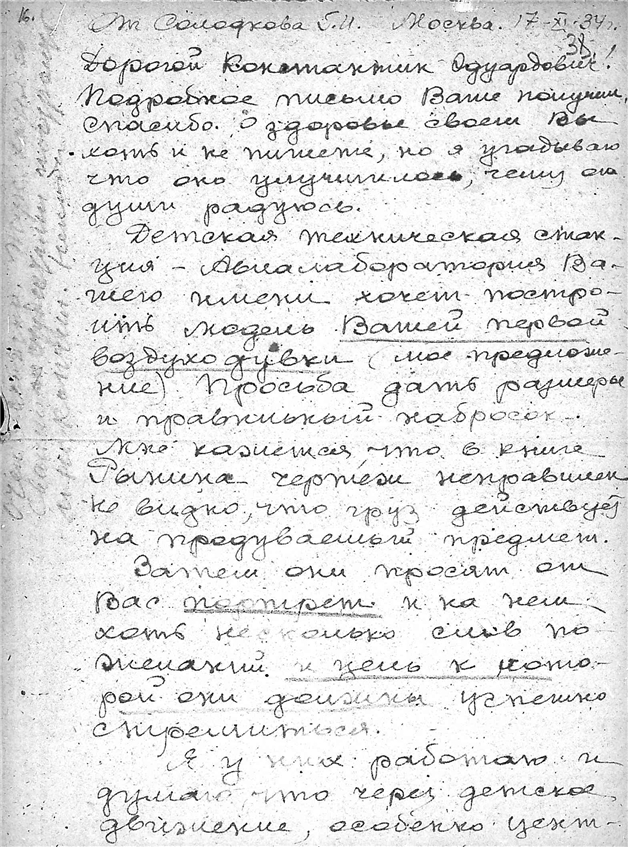 16.
От Солодкова Б.И. Москва. 17-XI-34г.
38
Дорогой Константин Эдуардович!
Подробное письмо Ваше получил,
спасибо. О здоровье своем Вы
хоть и не пишете, но я угадываю
что оно улучшилось, чему от
души радуюсь.
Детская техническая стан-
ция - Авиалаборатория Ва-
шего имени хочет постро-
ить модель Вашей первой
воздуходувки (мое предложе-
ние) Просьба дать размеры
и правильный набросок.
Мне кажется что в книге
Рынина чертеж неправилен
не видно, что груз действует
на продуваемый предмет.
Затем они просят от
Вас портрет и на нем
хоть несколько слов по-
желаний и цель к кото-
рой они должны успешно
стремиться.
Я у них работаю и
думаю что через детское
движение, особенно цент-